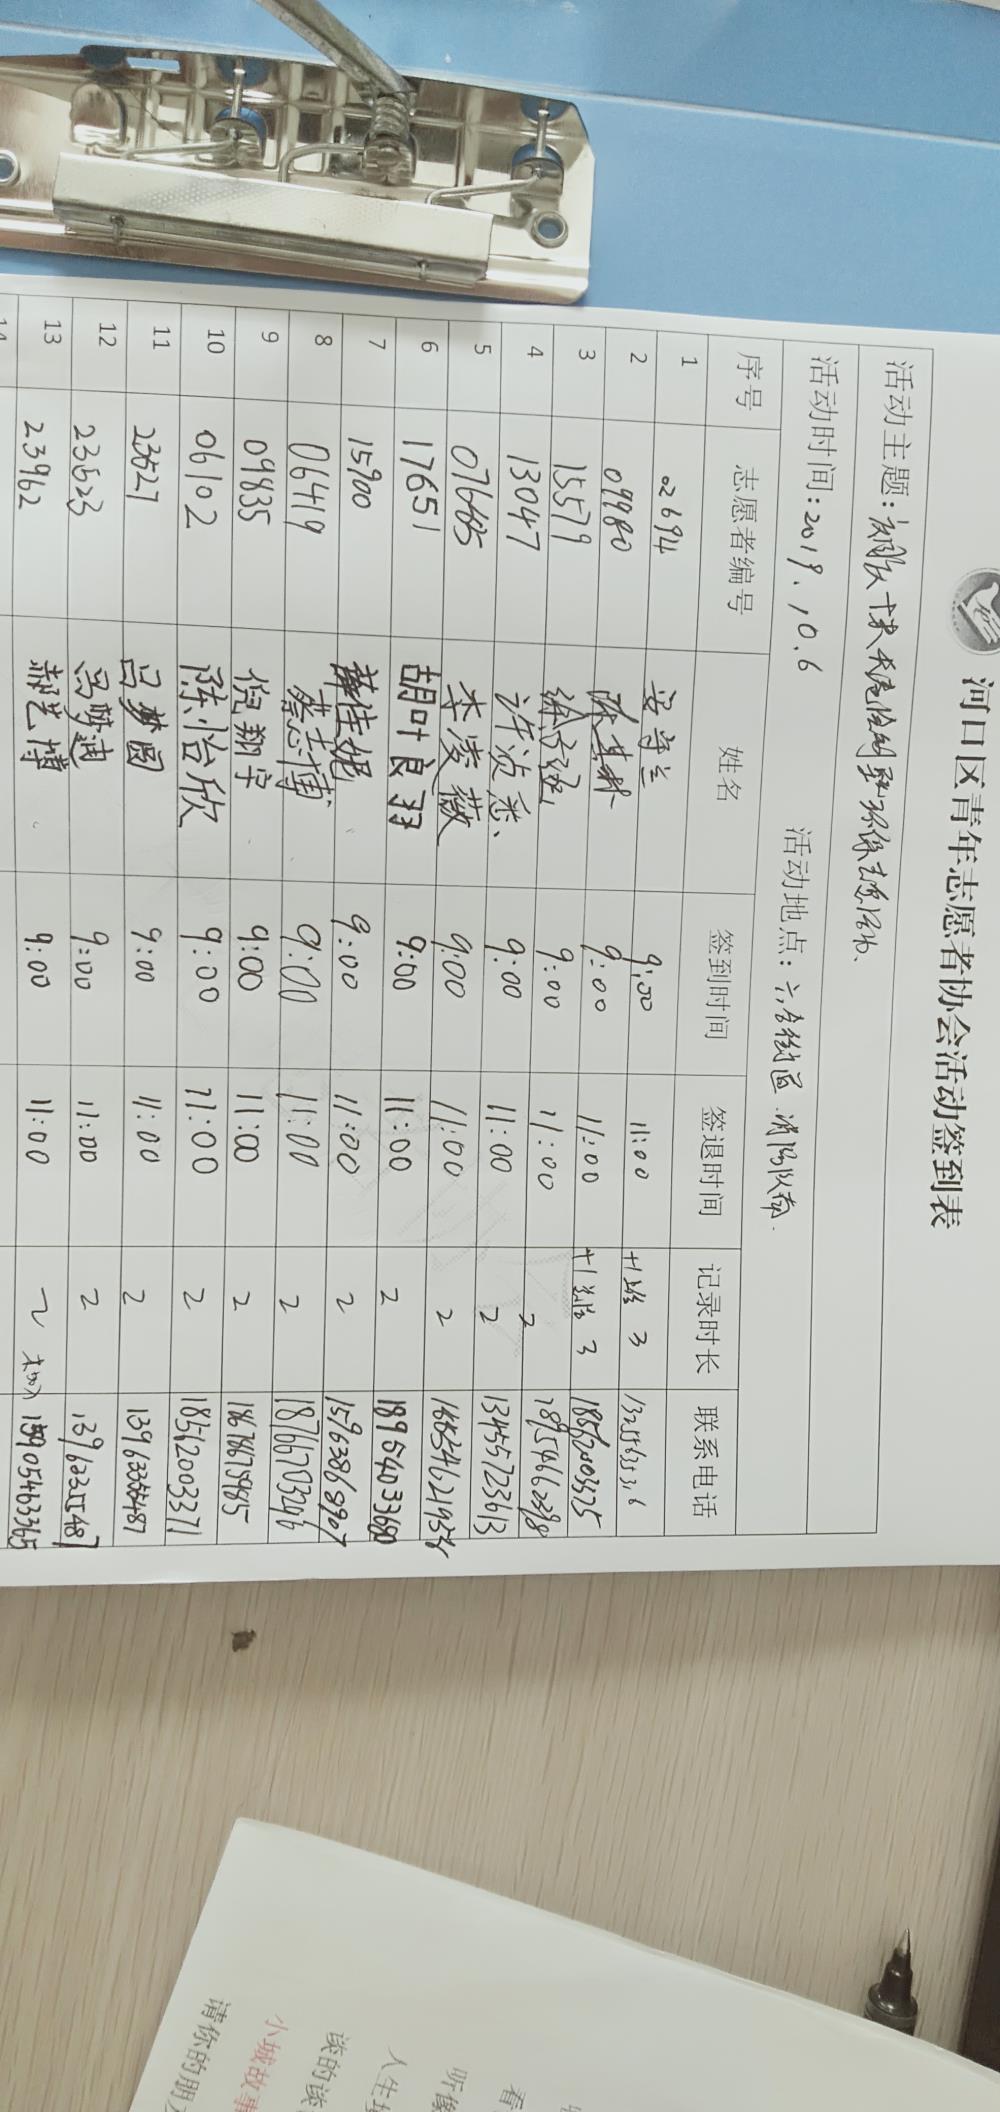 河口区青年志愿者协会活动签到表
活动主题：
活动时间：2019.10.6 活动地点：六合街道 消防队南.
序号 志愿者编号 姓名 签到时间 签退时间 记录时长 联系电话
1 02694 安守兰 9:00 11:00 3
2 09980 9:00 11:00 3
3 15579 9:00 11:00 2
4 13047 9:00 11:00 2 13455723613
5 李凌薇 9:00 11:00 2
6 17651 胡叶良羽 9:00 11:00 2 18954033680
7 15900 薛佳妮 9:00 11:00 2 15963868907
8 06419 蔡志博 9:00 11:00 2 18766703246
9 09835 倪翔宇 9:00 11:00 2 18678675985
10 06102 陈怡欣 9:00 11:00 2 18562003371
11 23527 吕梦圆 9:00 11:00 2 13963355487
12 23523 吕梦迪 9:00 11:00 2
13 23962 郝艺博 9:00 11:00 2 15905463365
14
看
听像
人生
谈的谈
小城故事
请你的朋友